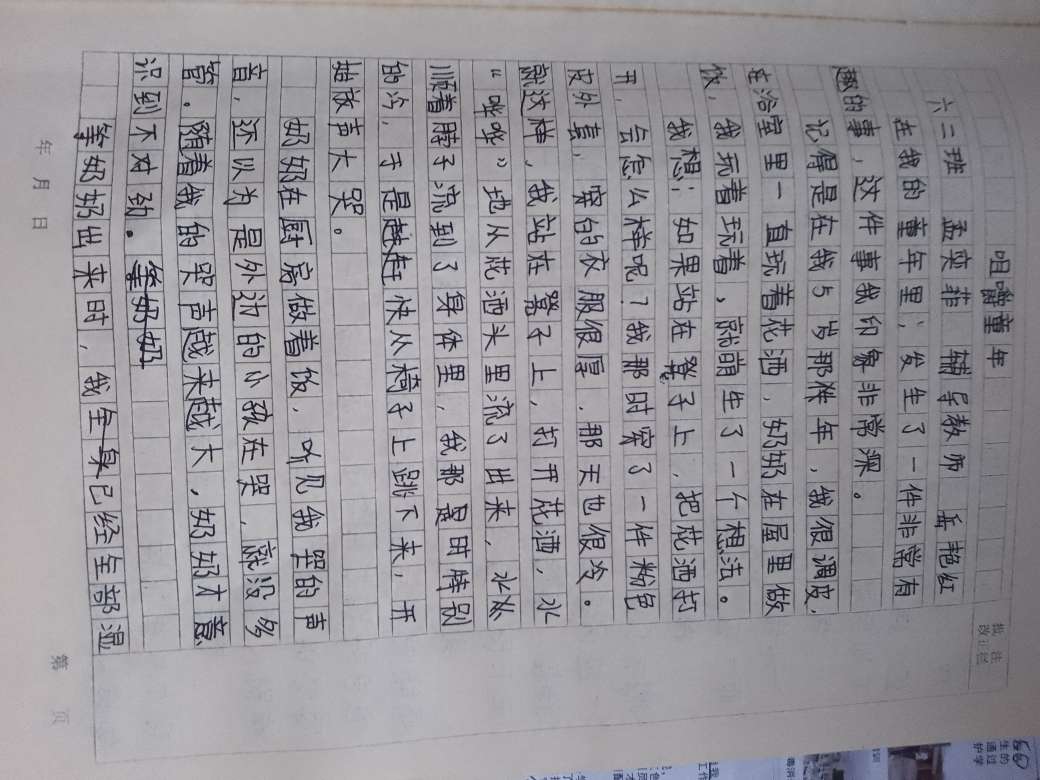 咀嚼童年
六二班 孟奕菲 辅导教师 岳艳红
在我的童年里，发生了一件非常有
趣的事，这件事我印象非常深。
记得是在我5岁那年，我很调皮，
在浴室里一直玩着花洒，奶奶在屋里做
饭，我玩着玩着，就萌生了一个想法。
我想；如果站在凳子上，把花洒打
开，会怎么样呢？我那时穿了一件粉色
皮外套，穿的衣服很厚，那天也很冷。
就这样，我站在凳子上，打开花洒，水
“哗哗”地从花洒头里流了出来，水丝
顺着脖子流到了身体里，我那是时特别
的冷，于是赶快从椅子上跳下来，开
始放声大哭。
奶奶在厨房做着饭，听见我哭的声
音，还以为是外边的小孩在哭，就没多
管。随着我的哭声越来越大，奶奶才意
识到不对劲。等奶奶
等奶奶出来时，我全身已经全部湿
年 月 日
第 页
批注
改正栏